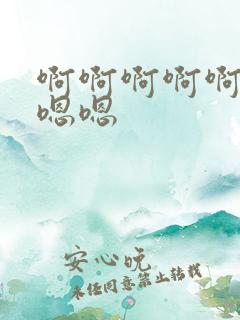 啊啊啊啊啊
嗯嗯
安心晥
未经同意禁止转载